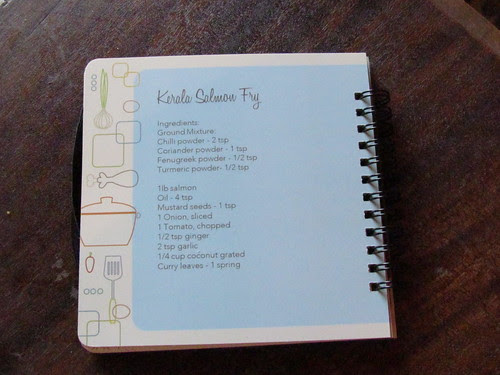 Kerala Salmon Fry
Ingredients:
Ground Mixture:
Chilli powder - 2 tsp
Coriander powder - 1 tsp
Fenugreek powder - 1/2 tsp
Turmeric powder- 1/2 tsp
1lb salmon
Oil - 4 tsp
Mustard seeds - 1 tsp
1 Onion, sliced
1 Tomato, chopped
1/2 tsp ginger
2 tsp garlic
1/4 cup coconut grated
Curry leaves - 1 spring